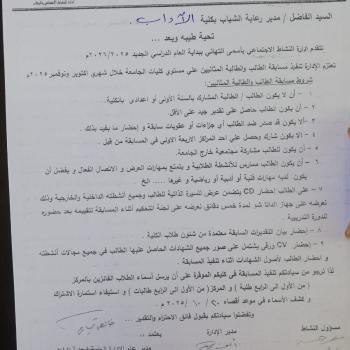 السيد الفاضل / مدير رعاية الشباب بكلية الآداب
تحية طيبه وبعد ...
تتقدم ادارة النشاط الاجتماعي بأسمى التهاني ببداية العام الدراسي الجديد ٢٠٢٦/٢٠٢٥
تعتزم الإدارة تنفيذ مسابقة الطالب والطالبة المثاليين على مستوي كليات الجامعة خلال شهري أكتوبر ونوفمبر ٢٠٢٥ م
شروط مسابقة الطالب والطالبة المثاليين :
١ – أن لا يكون الطالب / الطالبة المشارك بالسنة الأولى أو اعدادى بالكلية.
٢ – أن يكون الطالب حاصل على تقدير جيد على الأقل
٣ – ألا يكون قد صدر ضد الطالب أي جزاءات أو عقوبات سابقة و إحضار ما يفيد بذلك .
٤ – ألا يكون شارك وحصل علي احد المراكز الاربعة الاولي في المسابقة من قبل .
٥ – أن يكون الطالب مشاركة مجتمعية خارج الجامعة.
٦ – أن يكون الطالب ممارس للأنشطة الطلابية و يتمتع بمهارات العرض و الاتصال الفعال و يفضل أن
يكون لديه مهارات فنية أو أدبية أو رياضية و غيرها ..... الخ
٧ – على الطالب إحضار CD يتضمن عرض للسيرة الذاتية للطالب وجميع أنشطته الداخلية والخارجية وذلك
لعرضه على جهاز الداتا شو لمدة خمس دقائق لعرضه على لجنة التحكيم أثناء المسابقة لتقييمه بعد حضوره
للدورة التدريبية .
٨ – إحضار بيان التقديرات السابقة معتمدة من شئون طلاب الكلية .
٩ – إحضار CV ورقي يشتمل على صور جميع الشهادات الحاصل عليها الطالب في جميع مجالات أنشطته
و إحضار الطالب لأصول الشهادات اثناء تنفيذ المسابقة .
لذا نرجو من سيادتكم تنفيذ المسابقة في كليتكم الموقرة على أن يرسل أسماء الطلاب الفائزين بالمركز
( من الأول الى الرابع طلبة ) و ( من الأول الى الرابع طالبات ) و استيفاء استمارة الاشتراك
و كشف الأسماء في موعد أقصاه ٢٠ / ١٠ / ٢٠٢٥ م .
وتفضلوا سيادتكم بقبول فائق الاحترام والتقدير ...
مسؤول النشاط مدير الادارة يعتمد ..